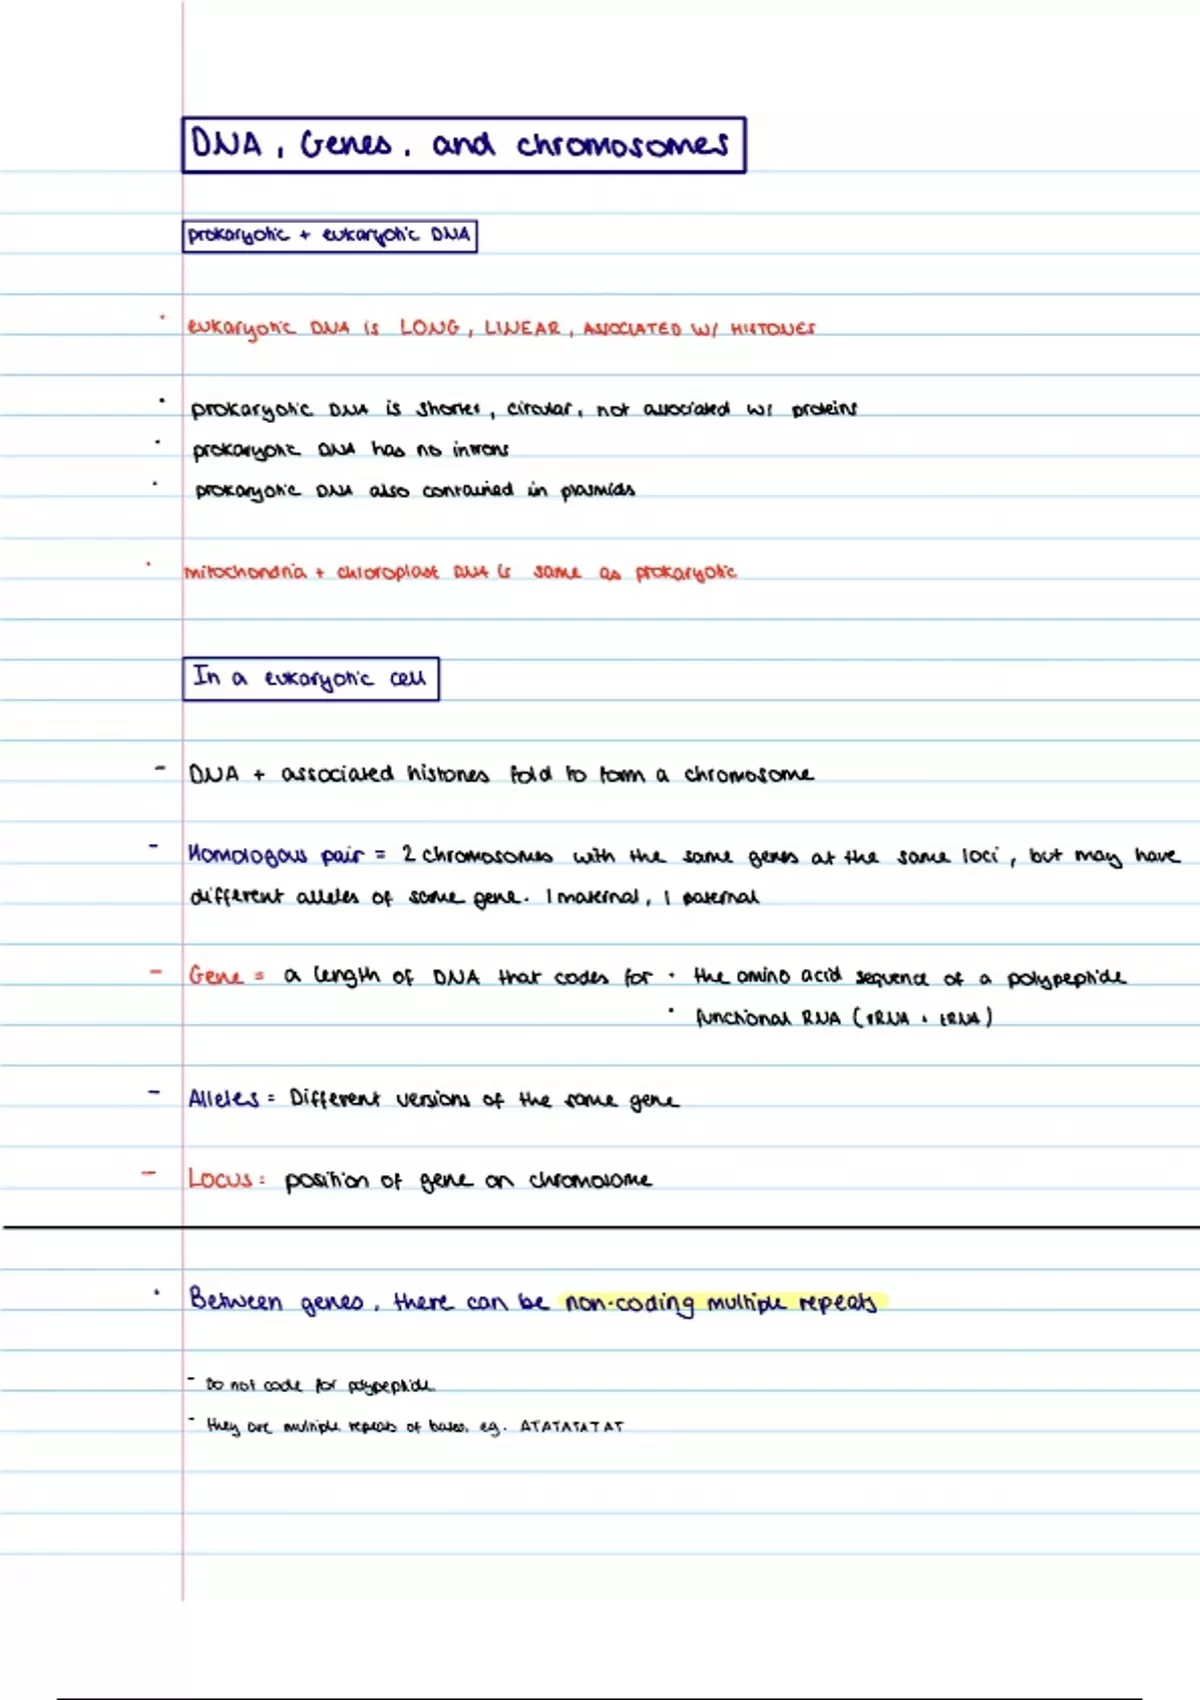 DNA, Genes, and chromosomes
prokaryotic + eukaryotic DNA
eukaryotic DNA is LONG, LINEAR, ASSOCIATED W/ HISTONES
prokaryotic DNA is shorter, circular, not associated w/ proteins
prokaryotic DNA has no introns
prokaryotic DNA also contained in plasmids
mitochondria + chloroplast DNA is same as prokaryotic
In a eukaryotic cell
- DNA + associated histones fold to form a chromosome
- Homologous pair = 2 chromosomes with the same genes at the same loci, but may have
different alleles of same gene. 1 maternal, 1 paternal
- Gene = a length of DNA that codes for · the amino acid sequence of a polypeptide
· functional RNA (rRNA + tRNA)
- Alleles = Different versions of the same gene
- Locus = position of gene on chromosome
· Between genes, there can be non-coding multiple repeats
- Do not code for polypeptide
- they are multiple repeats of bases, eg. ATATATATAT